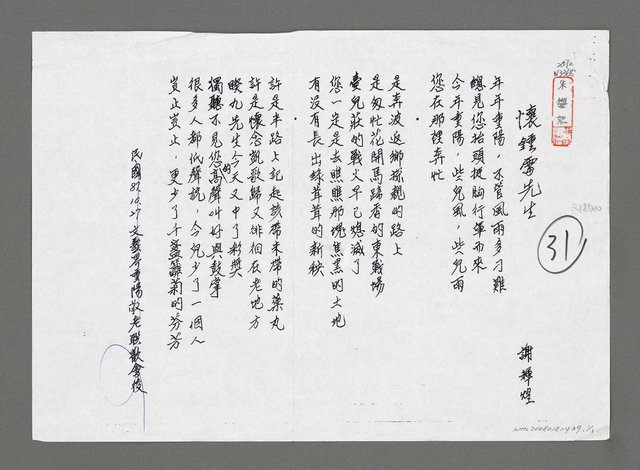 懷鍾雷先生
謝輝煌
年年重陽，不管風雨多刁難
總見您抬頭挺胸行軍而來
今年重陽，些兒風，些兒雨
您在那裡奔忙
是奔波返鄉探親的路上
是匆忙花開馬蹄香的東戰場
臺兒莊的戰火早已熄滅了
您一定是去瞧瞧那塊焦黑的土地
有沒有長出綠茸茸的新秧
許是半路上記起該帶未帶的藥丸
許是懷念凱歌歸又徘徊在老地方
睽九先生今天又中了彩獎
獨聽不見您的高聲叫好與鼓掌
很多人都低聲說，今兒少了一個人
豈止豈止，更少了千盞籬菊的芬芳
民國87.10.27文藝界重陽敬老聯歡會後
31